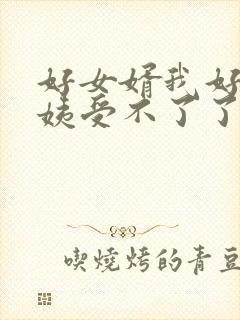 好女婿我好
姨受不了了
喫燒烤的青豆